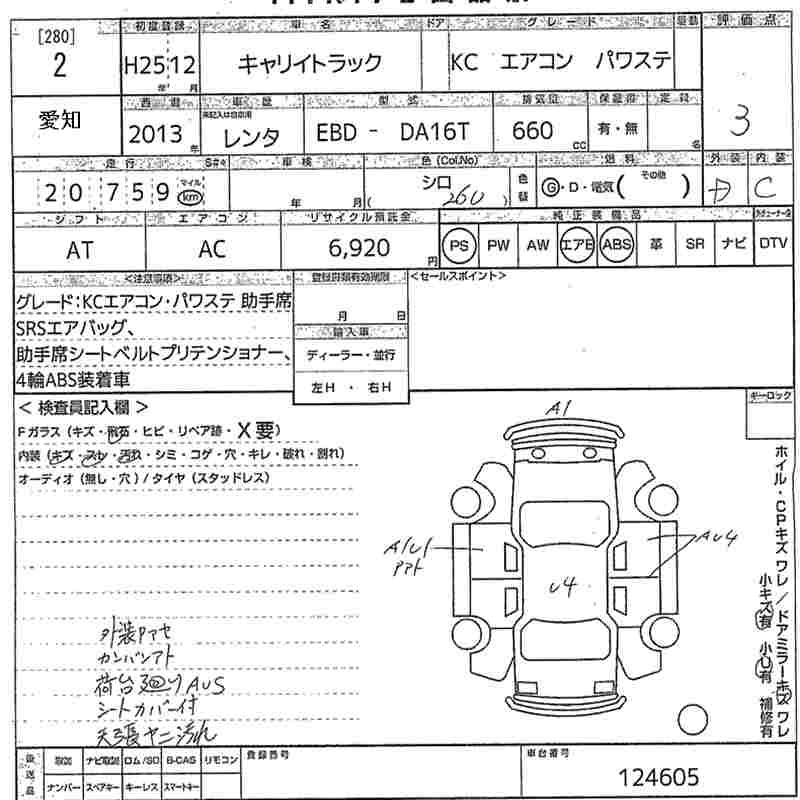 [280]
2
初度登録 車名 ドア グレード 評価点
H25 12 年 月 キャリイトラック KC エアコン パワステ
3
愛知
西暦 車歴 型式 排気量 保証書 定員
2013年 未記入は自家用 レンタ EBD - DA16T 660 cc 有・無 名
走行 車検 色(Col.No) 燃料 外装 内装
20759 マイル km 年 月 ( シロ 260 ) 色替 G・D・電気( その他 ) D C
シフト エアコン リサイクル預託金 純正装備品
AT AC 6,920円 PS PW AW エアB ABS 革 SR ナビ DTV
<注意事項> 登録書類有効期限 <セールスポイント>
グレード:KCエアコン・パワステ 助手席
SRSエアバッグ、
助手席シートベルトプリテンショナー、
4輪ABS装着車
月 日
輸入車
ディーラー・並行
左H ・ 右H
< 検査員記入欄 >
Fガラス (キズ・飛石・ヒビ・リペア跡・X要)
内装 (キズ・スレ・汚れ・シミ・コゲ・穴・キレ・破れ・割れ)
オーディオ (無し・穴) / タイヤ (スタッドレス)
キーロック
A1
A1U1
アト
AU4
U4
ホイル・CPキズ ワレ / ドアミラーキズ ワレ
小キズ有 小U有 補修有
外装アセ
カンバンアト
荷台廻りAUS
シートカバー付
天張ヤニ汚れ
後送品 取説 ナビ取説 ロム/SD B-CAS リモコン
ナンバー スペアキー キーレス スマートキー
登録番号
車台番号
124605